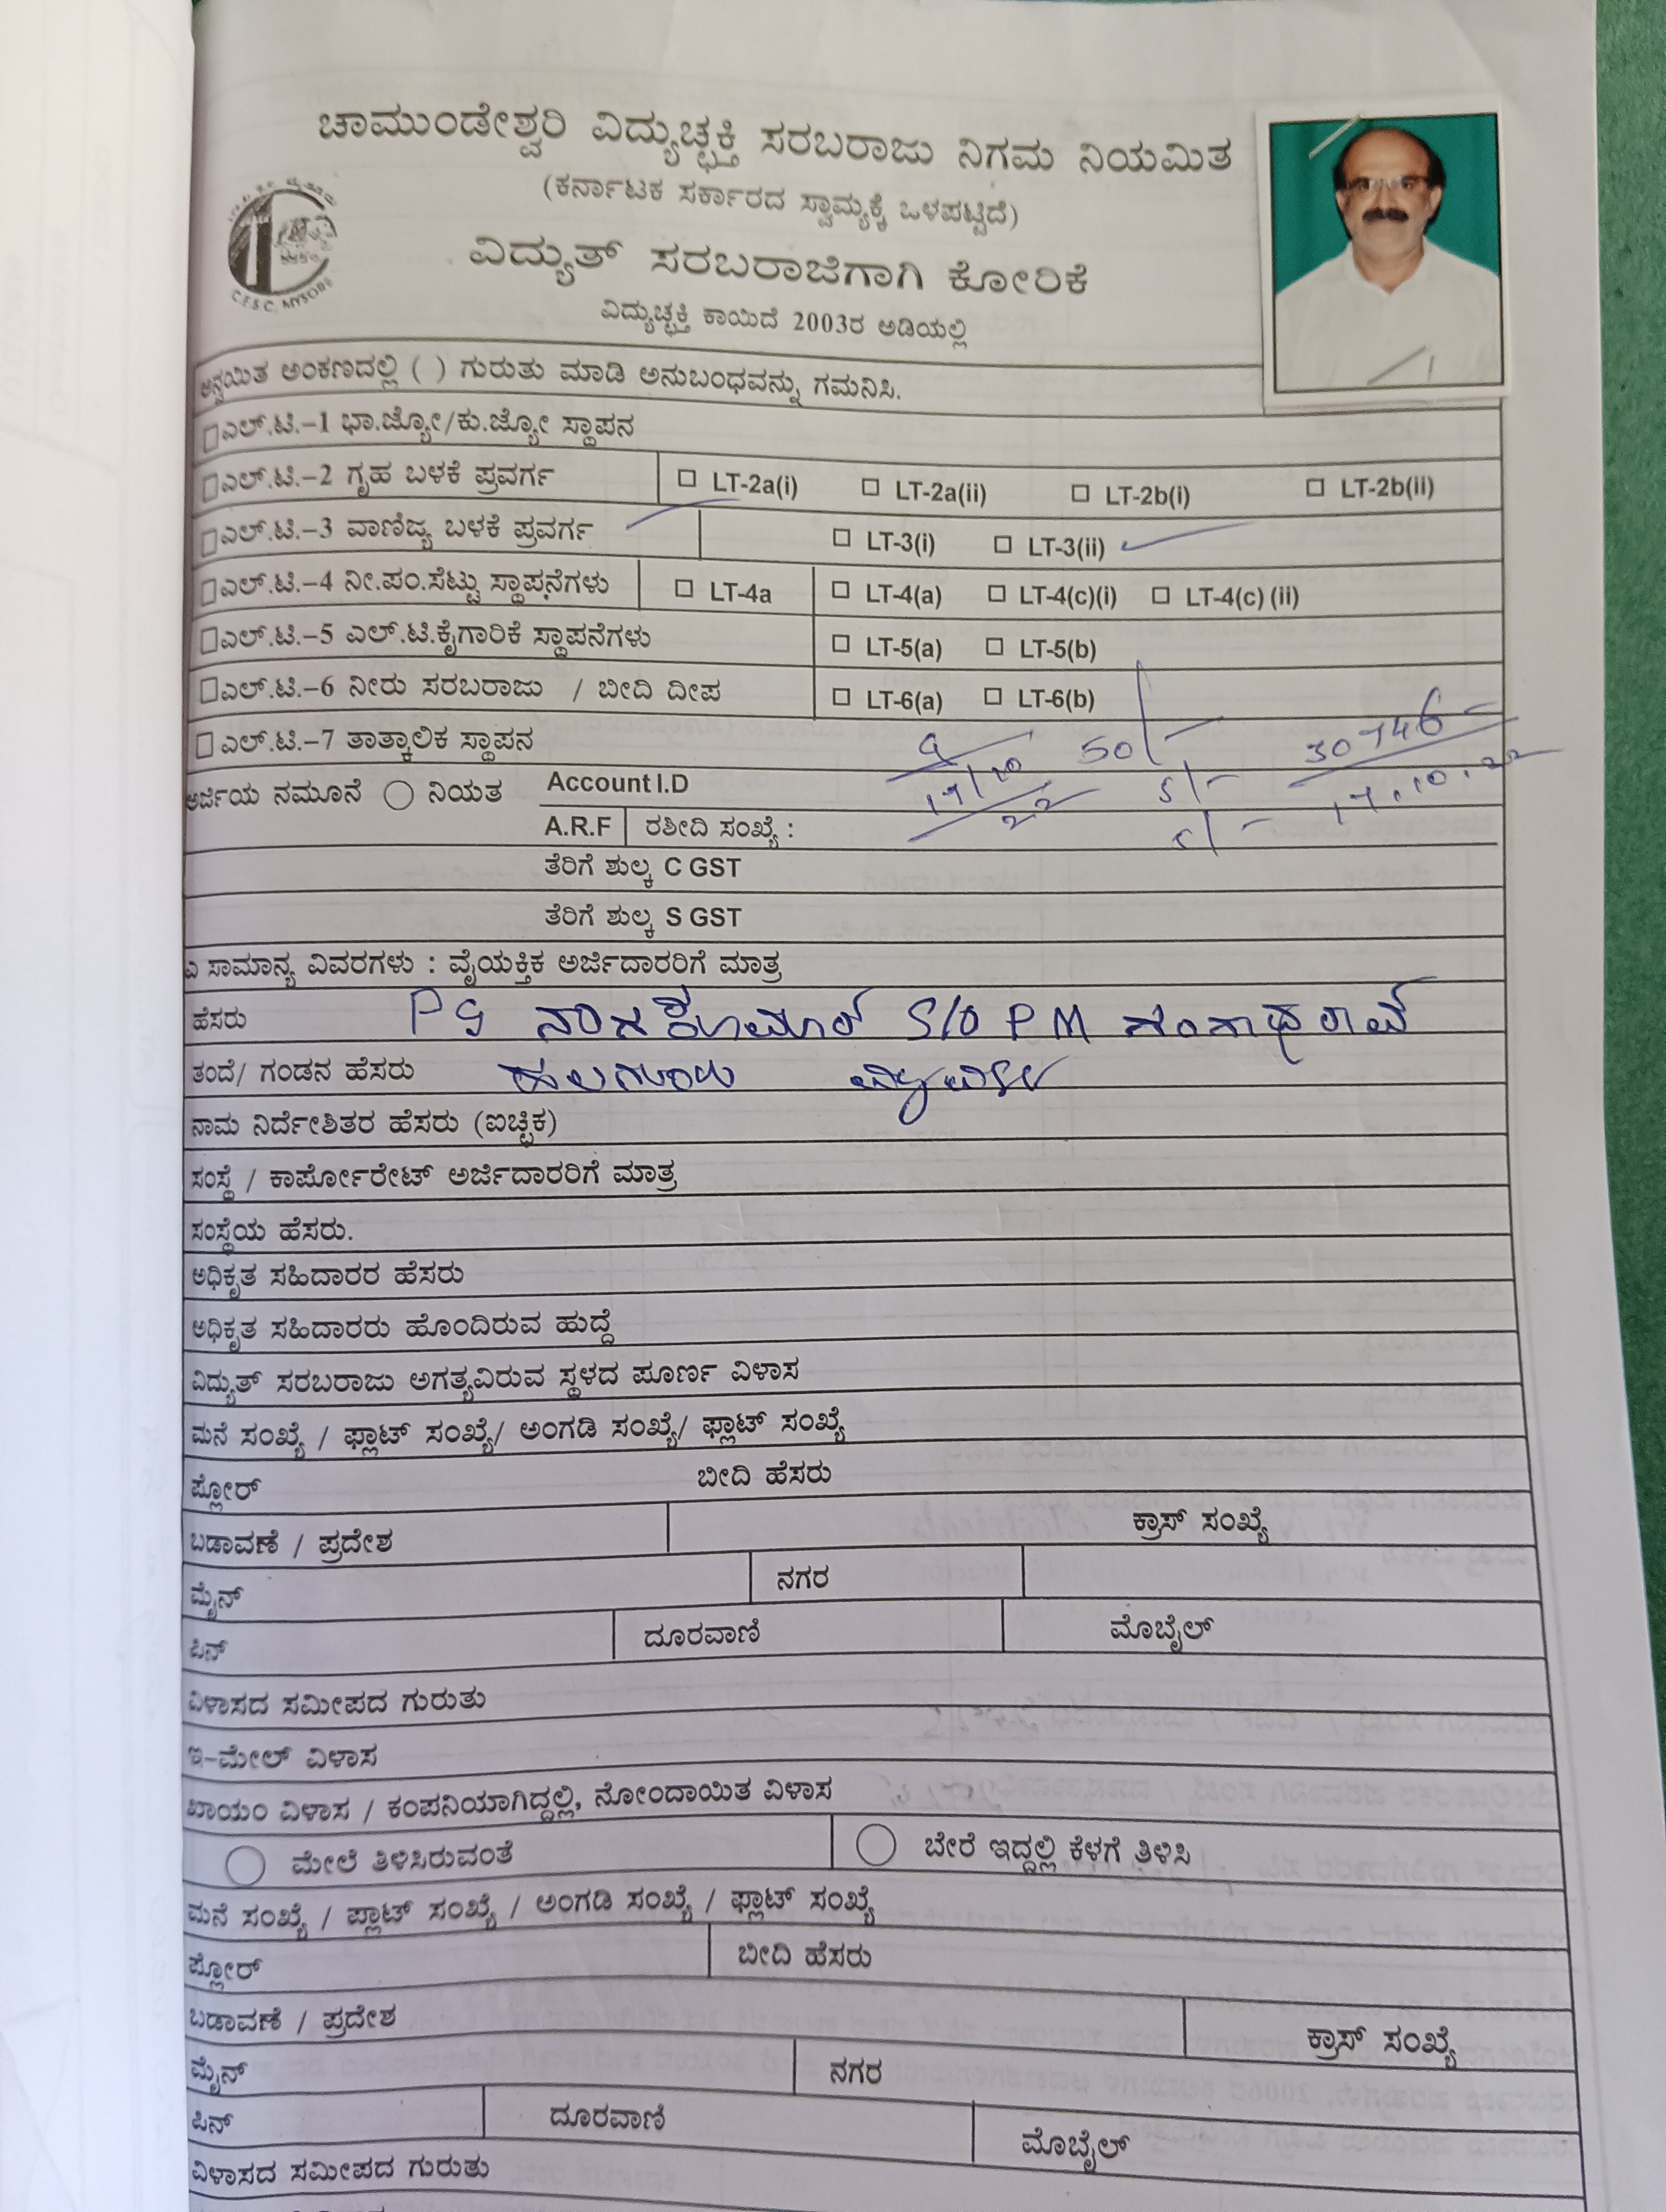 ಚಾಮುಂಡೇಶ್ವರಿ ವಿದ್ಯುಚ್ಛಕ್ತಿ ಸರಬರಾಜು ನಿಗಮ ನಿಯಮಿತ
(ಕರ್ನಾಟಕ ಸರ್ಕಾರದ ಸ್ವಾಮ್ಯಕ್ಕೆ ಒಳಪಟ್ಟಿದೆ)
ವಿದ್ಯುತ್ ಸರಬರಾಜೆಗಾಗಿ ಕೋರಿಕೆ
C.E.S C, MYSORE
ವಿದ್ಯುಚ್ಛಕ್ತಿ ಕಾಯಿದೆ 2003ರ ಅಡಿಯಲ್ಲಿ
ಅನ್ವಯಿತ ಅಂಕಣದಲ್ಲಿ ( ) ಗುರುತು ಮಾಡಿ ಅನುಬಂಧವನ್ನು ಗಮನಿಸಿ.
ಎಲ್.ಟಿ.–1 ಭಾ.ಜ್ಯೋ/ಕು.ಜ್ಯೋ ಸ್ಥಾಪನ
ಎಲ್.ಟಿ.–2 ಗೃಹ ಬಳಕೆ ಪ್ರವರ್ಗ LT-2a(i) LT-2a(ii) LT-2b(i) LT-2b(ii)
ಎಲ್.ಟಿ.–3 ವಾಣಿಜ್ಯ ಬಳಕೆ ಪ್ರವರ್ಗ LT-3(i) LT-3(ii)
ಎಲ್.ಟಿ.–4 ನೀ.ಪಂ.ಸೆಟ್ಟು ಸ್ಥಾಪನೆಗಳು LT-4a LT-4(a) LT-4(c)(i) LT-4(c) (ii)
ಎಲ್.ಟಿ.–5 ಎಲ್.ಟಿ.ಕೈಗಾರಿಕೆ ಸ್ಥಾಪನೆಗಳು LT-5(a) LT-5(b)
ಎಲ್.ಟಿ.–6 ನೀರು ಸರಬರಾಜು / ಬೀದಿ ದೀಪ LT-6(a) LT-6(b)
ಎಲ್.ಟಿ.–7 ತಾತ್ಕಾಲಿಕ ಸ್ಥಾಪನ 50/- 30746
ಅರ್ಜಿಯ ನಮೂನೆ ನಿಯತ Account I.D 17/10 22 5/- 17.10.22
A.R.F ರಶೀದಿ ಸಂಖ್ಯೆ : 5/-
ತೆರಿಗೆ ಶುಲ್ಕ C GST
ತೆರಿಗೆ ಶುಲ್ಕ S GST
ಎ ಸಾಮಾನ್ಯ ವಿವರಗಳು : ವೈಯಕ್ತಿಕ ಅರ್ಜಿದಾರರಿಗೆ ಮಾತ್ರ
ಹೆಸರು PG S/O PM
ತಂದೆ/ ಗಂಡನ ಹೆಸರು
ನಾಮ ನಿರ್ದೇಶಿತರ ಹೆಸರು (ಐಚ್ಛಿಕ)
ಸಂಸ್ಥೆ / ಕಾರ್ಪೋರೇಟ್ ಅರ್ಜಿದಾರರಿಗೆ ಮಾತ್ರ
ಸಂಸ್ಥೆಯ ಹೆಸರು.
ಅಧಿಕೃತ ಸಹಿದಾರರ ಹೆಸರು
ಅಧಿಕೃತ ಸಹಿದಾರರು ಹೊಂದಿರುವ ಹುದ್ದೆ
ವಿದ್ಯುತ್ ಸರಬರಾಜು ಅಗತ್ಯವಿರುವ ಸ್ಥಳದ ಪೂರ್ಣ ವಿಳಾಸ
ಮನೆ ಸಂಖ್ಯೆ / ಫ್ಲಾಟ್ ಸಂಖ್ಯೆ/ ಅಂಗಡಿ ಸಂಖ್ಯೆ/ ಫ್ಲಾಟ್ ಸಂಖ್ಯೆ
ಪ್ಲೋರ್ ಬೀದಿ ಹೆಸರು
ಬಡಾವಣೆ / ಪ್ರದೇಶ ಕ್ರಾಸ್ ಸಂಖ್ಯೆ
ಮೈನ್ ನಗರ
ಪಿನ್ ದೂರವಾಣಿ ಮೊಬೈಲ್
ವಿಳಾಸದ ಸಮೀಪದ ಗುರುತು
ಇ–ಮೇಲ್ ವಿಳಾಸ
ಖಾಯಂ ವಿಳಾಸ / ಕಂಪನಿಯಾಗಿದ್ದಲ್ಲಿ, ನೋಂದಾಯಿತ ವಿಳಾಸ
ಮೇಲೆ ತಿಳಿಸಿರುವಂತೆ ಬೇರೆ ಇದ್ದಲ್ಲಿ ಕೆಳಗೆ ತಿಳಿಸಿ
ಮನೆ ಸಂಖ್ಯೆ / ಪ್ಲಾಟ್ ಸಂಖ್ಯೆ / ಅಂಗಡಿ ಸಂಖ್ಯೆ / ಫ್ಲಾಟ್ ಸಂಖ್ಯೆ
ಪ್ಲೋರ್ ಬೀದಿ ಹೆಸರು
ಬಡಾವಣೆ / ಪ್ರದೇಶ ಕ್ರಾಸ್ ಸಂಖ್ಯೆ
ಮೈನ್ ನಗರ
ಪಿನ್ ದೂರವಾಣಿ ಮೊಬೈಲ್
ವಿಳಾಸದ ಸಮೀಪದ ಗುರುತು